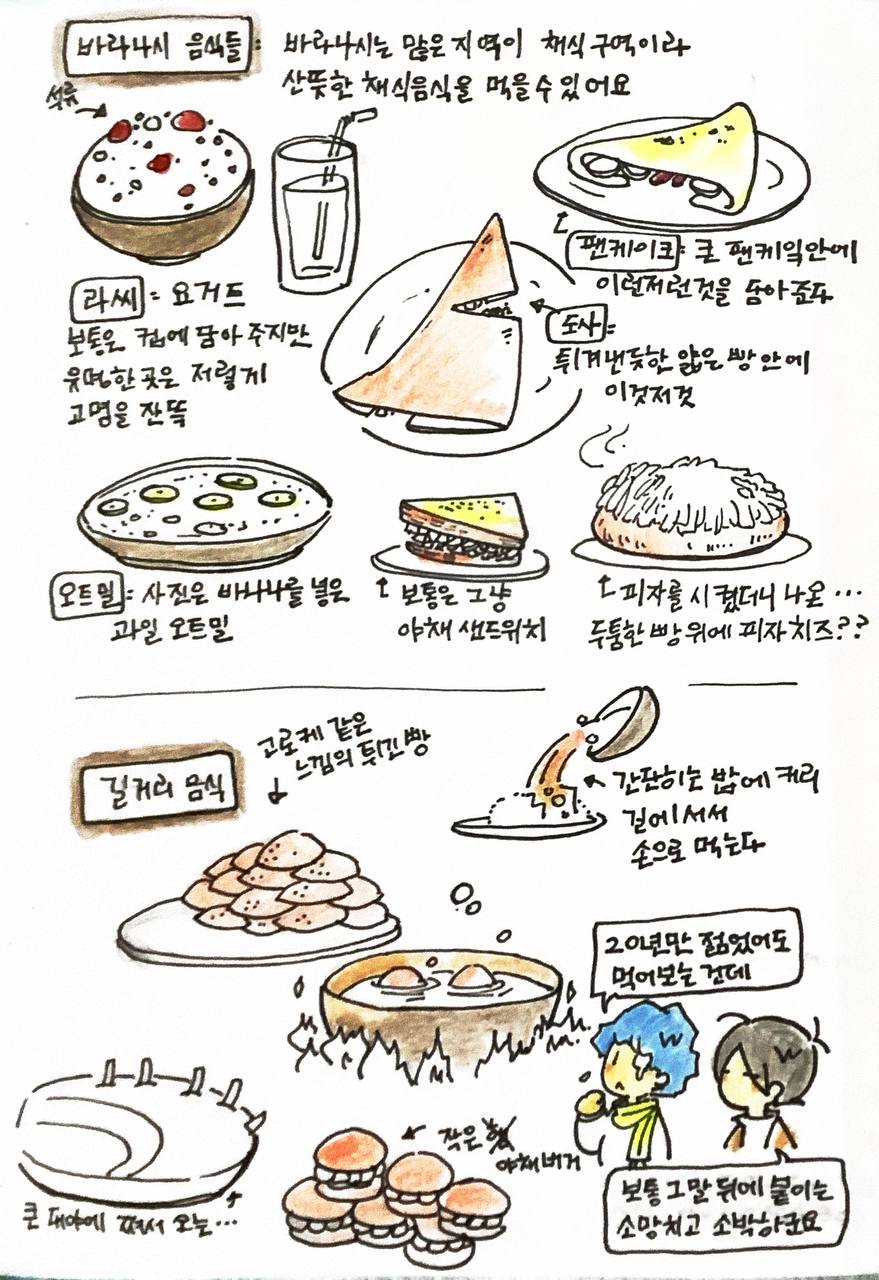 바라나시 음식들:
바라나시는 많은 지역이 채식구역이라
산뜻한 채식음식을 먹을 수 있어요
석류
라씨: 요거트
보통은 컵에 담아 주지만
유명한 곳은 저렇게
고명을 잔뜩
팬케이크: 큰 팬케익안에
이런저런것을 담아준다
도사:
튀겨낸듯한 얇은 빵 안에
이것저것
오트밀: 사진은 바나나를 넣은
과일 오트밀
보통은 그냥
야채 샌드위치
피자를 시켰더니 나온...
두툼한 빵 위에 피자치즈??
길거리 음식
고로케 같은
느낌의 튀긴 빵
간단히는 밥에 커리
길에 서서
손으로 먹는다
20년만 젊었어도
먹어보는 건데
작은
야채버거
큰 대야에 쪄서 오는...
보통 그말 뒤에 붙이는
소망치고 소박하군요